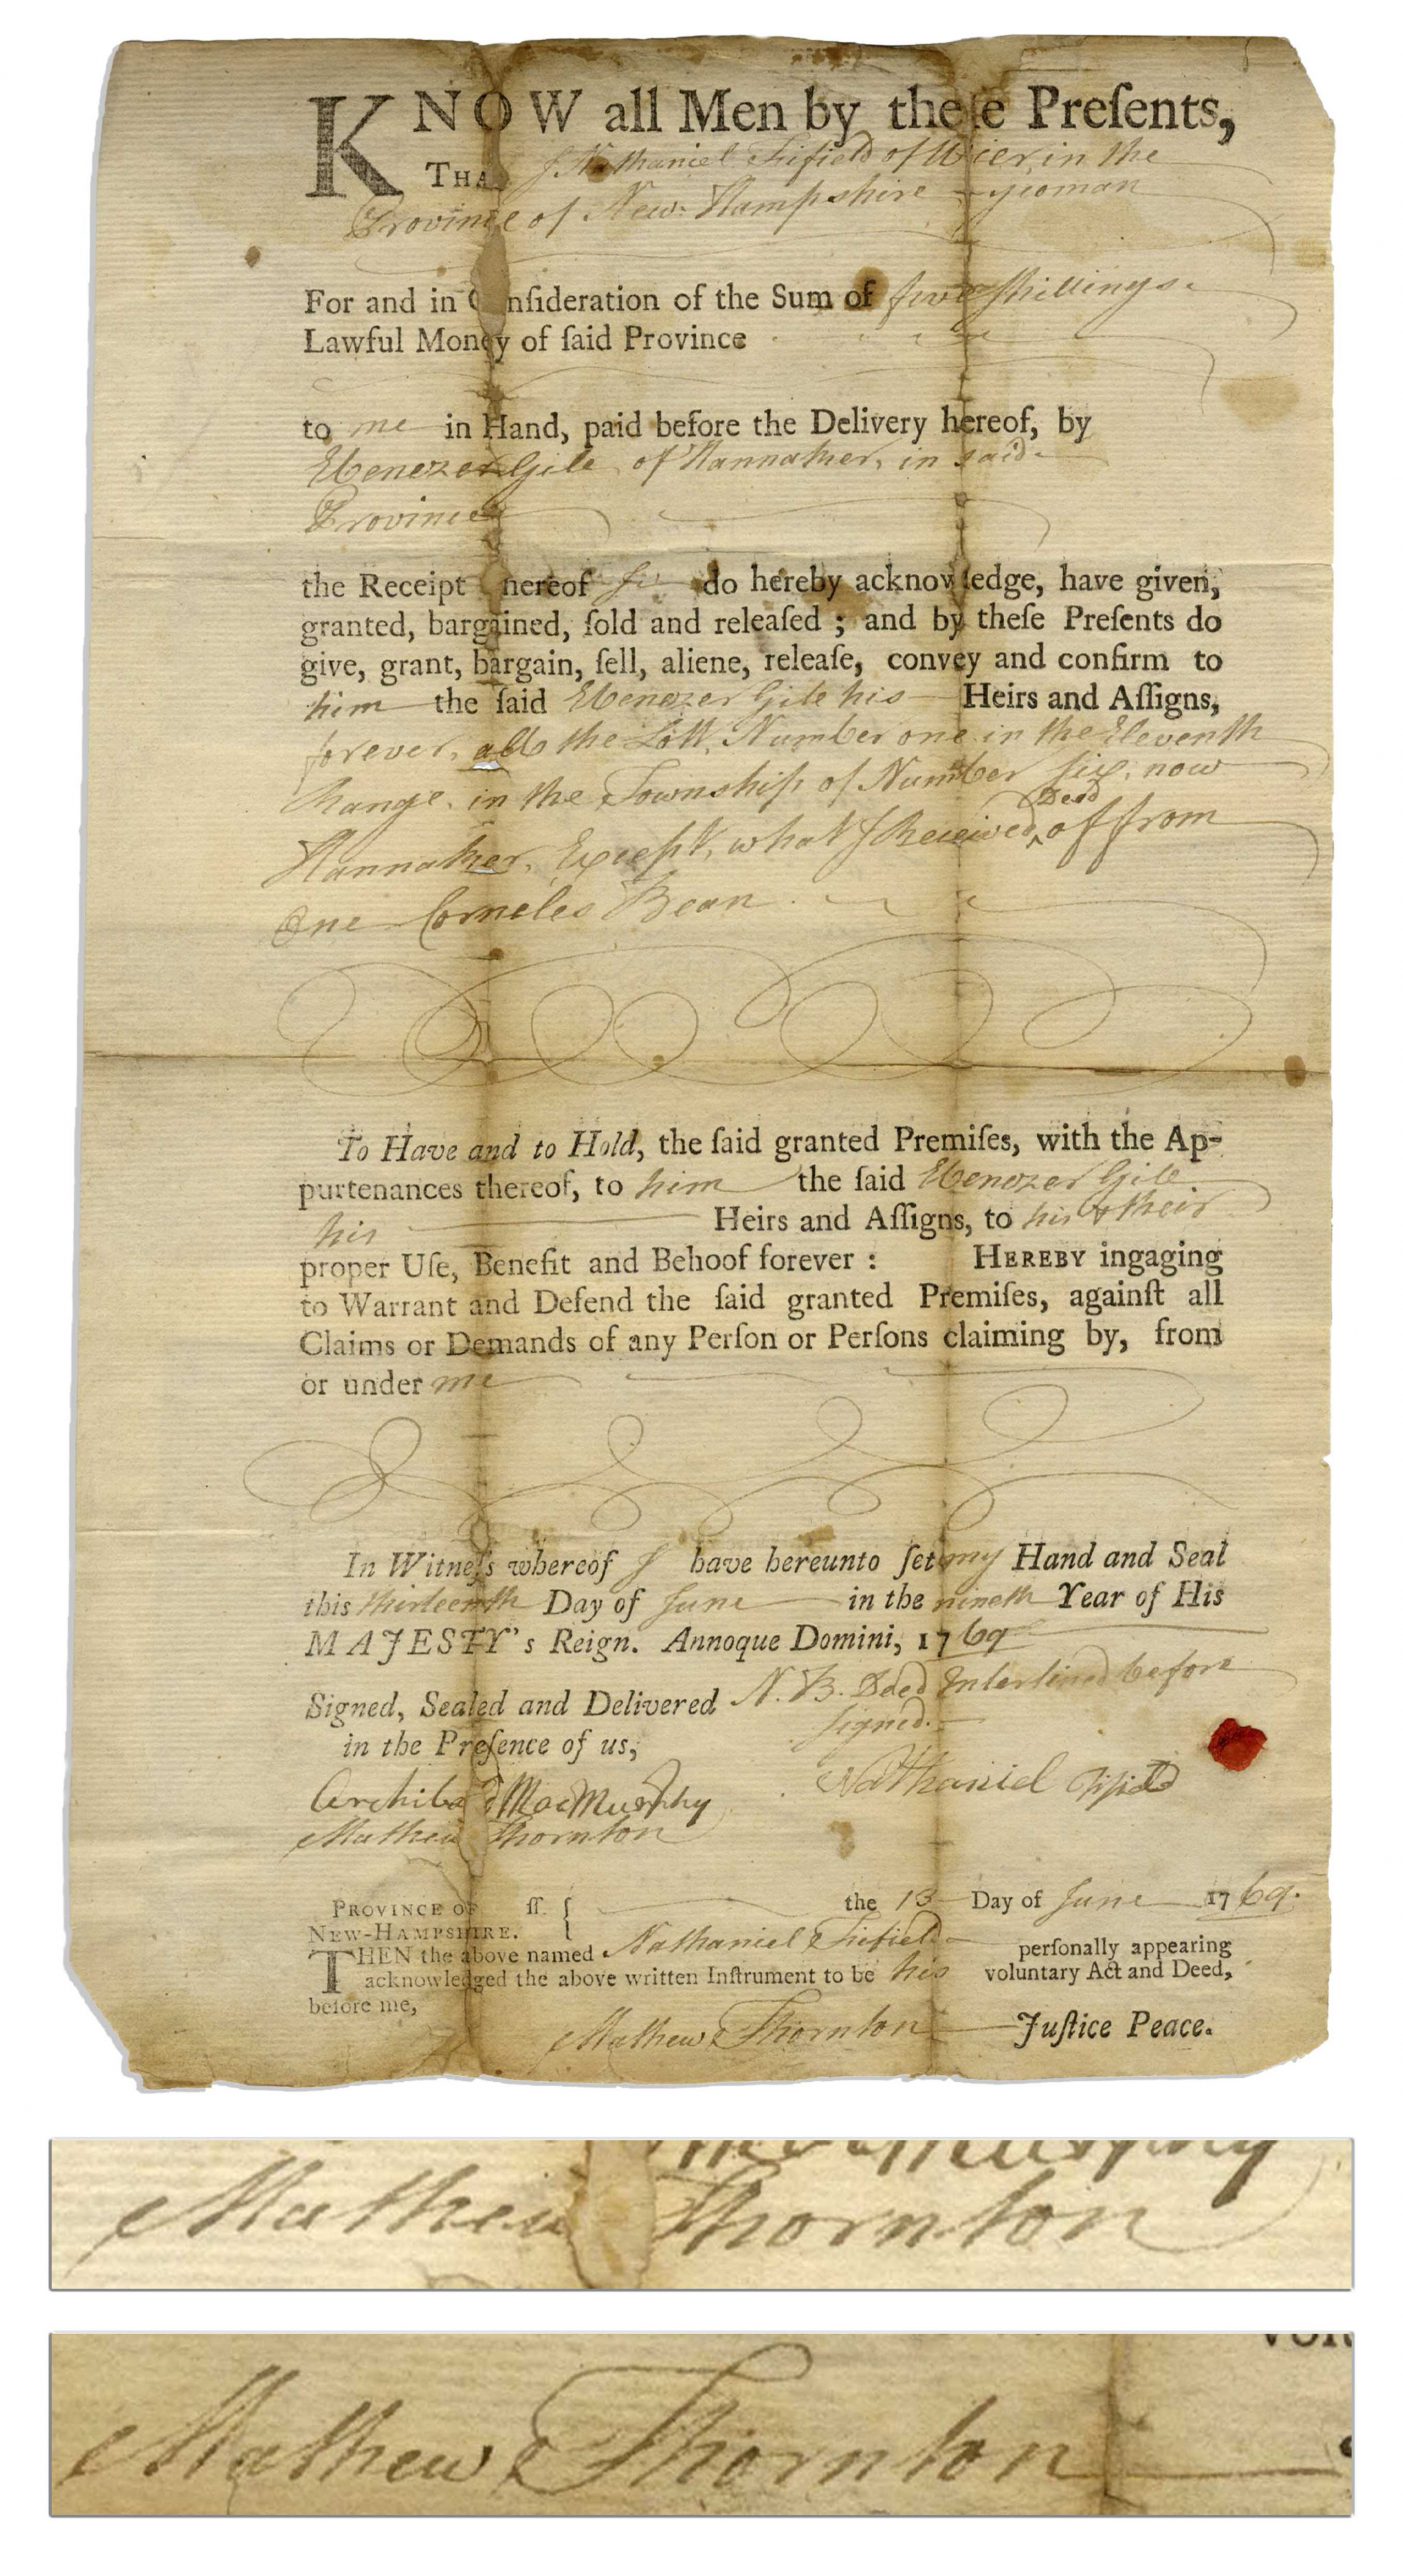 KNOW all Men by theſe Preſents,
THAT I Nathaniel Fifield of Wier, in the
Province of New-Hampshire yioman
For and in Conſideration of the Sum of five ſhillings
Lawful Money of ſaid Province
to me in Hand, paid before the Delivery hereof, by
Ebenezer Gile of Hannaker, in said
Province
the Receipt hereof I do hereby acknowledge, have given,
granted, bargained, ſold and releaſed ; and by theſe Preſents do
give, grant, bargain, ſell, aliene, releaſe, convey and confirm to
him the ſaid Ebenezer Gile his Heirs and Aſſigns,
forever, all the Lott, Number one in the Eleventh
Range, in the Township of Number six, now
Deed
Hannaker, Except, what I Received ‸ off from
One Corneles Bean
To Have and to Hold, the ſaid granted Premiſes, with the Ap-
purtenances thereof, to him the ſaid Ebenezer Gile
his Heirs and Aſſigns, to his & their
proper Uſe, Benefit and Behoof forever : HEREBY ingaging
to Warrant and Defend the ſaid granted Premiſes, againſt all
Claims or Demands of any Perſon or Perſons claiming by, from
or under me
In Witneſs whereof I have hereunto ſet my Hand and Seal
this thirteenth Day of June in the nineth Year of His
MAJESTY's Reign. Annoque Domini, 1769
Signed, Sealed and Delivered N. B. Deed Interlined before
signed.
in the Preſence of us,
Archibald MacMurphy Nathaniel Fifield
Mathew Thornton
PROVINCE OF ſſ. { the 13 Day of June 1769.
NEW-HAMPSHIRE.
THEN the above named Nathaniel Fifield perſonally appearing
acknowledged the above written Inſtrument to be his voluntary Act and Deed,
before me,
Mathew Thornton Juſtice Peace.
MacMurphy
Mathew Thornton
Mathew Thornton